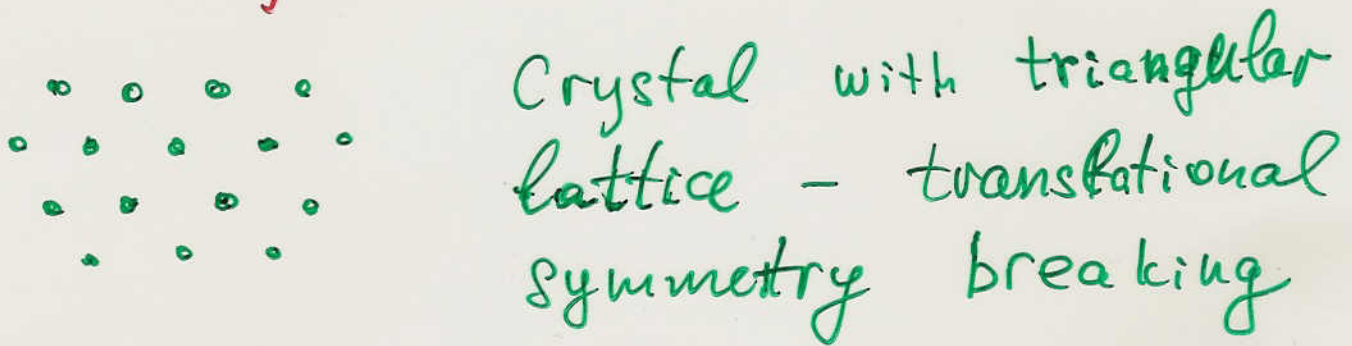 Crystal with triangular
lattice - translational
symmetry breaking